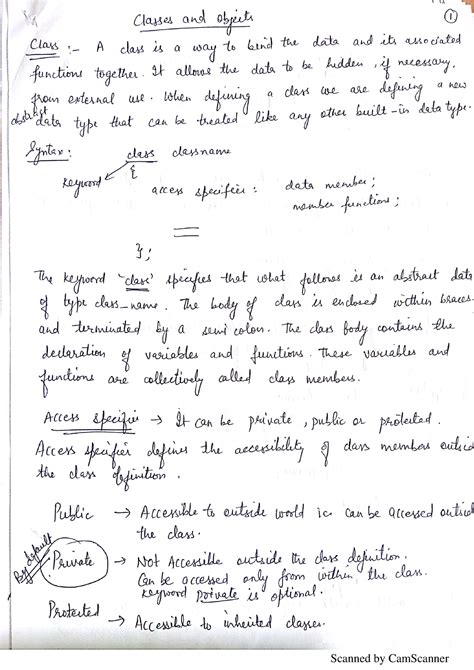 Classes and objects
1
Class :- A class is a way to bind the data and its associated
functions together. It allows the data to be hidden, if necessary,
from external use. When defining a class we are defining a new
abstract data type that can be treated like any other built-in data type.
Syntax: class classname
{
keyword
access specifier : data member;
member functions;
};
The keyword 'class' specifies that what follows is an abstract data
of type class_name. The body of class is enclosed within braces
and terminated by a semi colon. The class body contains the
declaration of variables and functions. These variables and
functions are collectively called class members.
Access specifier → It can be private, public or protected.
Access specifier defines the accessibility of class members outside
the class definition.
Public → Accessible to outside world ie can be accessed outside
the class.
By default
Private → Not Accessible outside the class definition.
Can be accessed only from within the class.
keyword private is optional.
Protected → Accessible to inherited classes.
Scanned by CamScanner